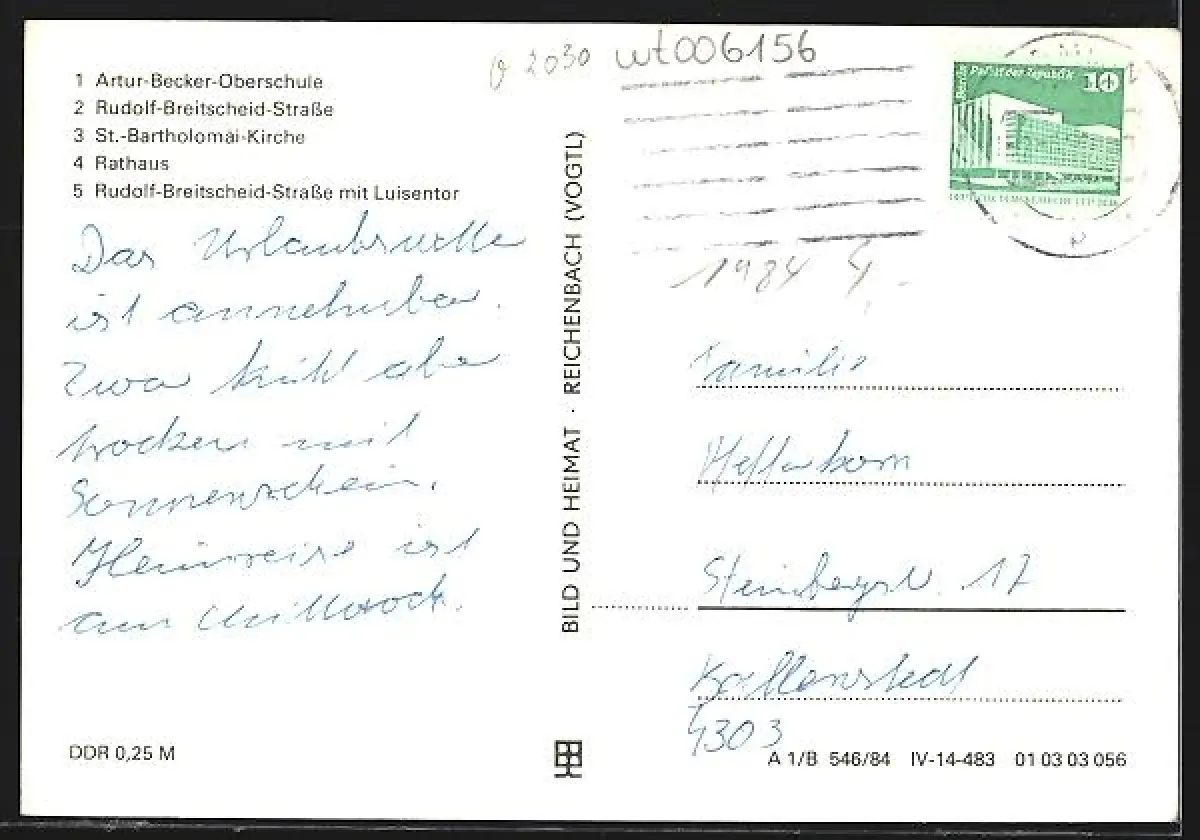 σ 2030 wt006156
1 Artur-Becker-Oberschule
2 Rudolf-Breitscheid-Straße
3 St.-Bartholomäi-Kirche
4 Rathaus
5 Rudolf-Breitscheid-Straße mit Luisentor
Berlin Palast der Republik 10
1984
Das
ist annehmbar.
Zwar kühl aber
trocken mit
Sonnenschein.
Heimreise ist
am Mittwoch.
BILD UND HEIMAT · REICHENBACH (VOGTL)
Familie
Steinbergstr. 17
Ballenstedt
4303
DDR 0,25 M
A 1/B 546/84 IV-14-483 01 03 03 056